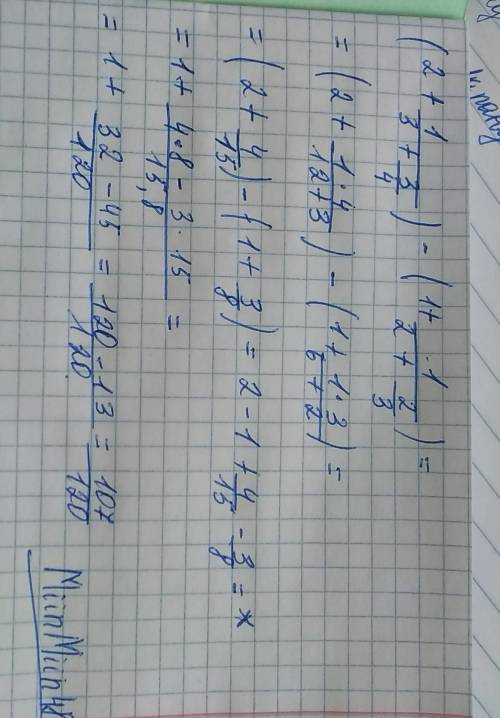 (2 + 1/(3 + 3/4)) - (1 + 1/(2 + 2/3)) =
= (2 + 1·4/(12+3)) - (1 + 1·3/(6+2)) =
= (2 + 4/15) - (1 + 3/8) = 2 - 1 + 4/15 - 3/8 = *
= 1 + (4·8 - 3·15)/(15,8) =
= 1 + (32 - 45)/120 = (120 - 13)/120 = 107/120